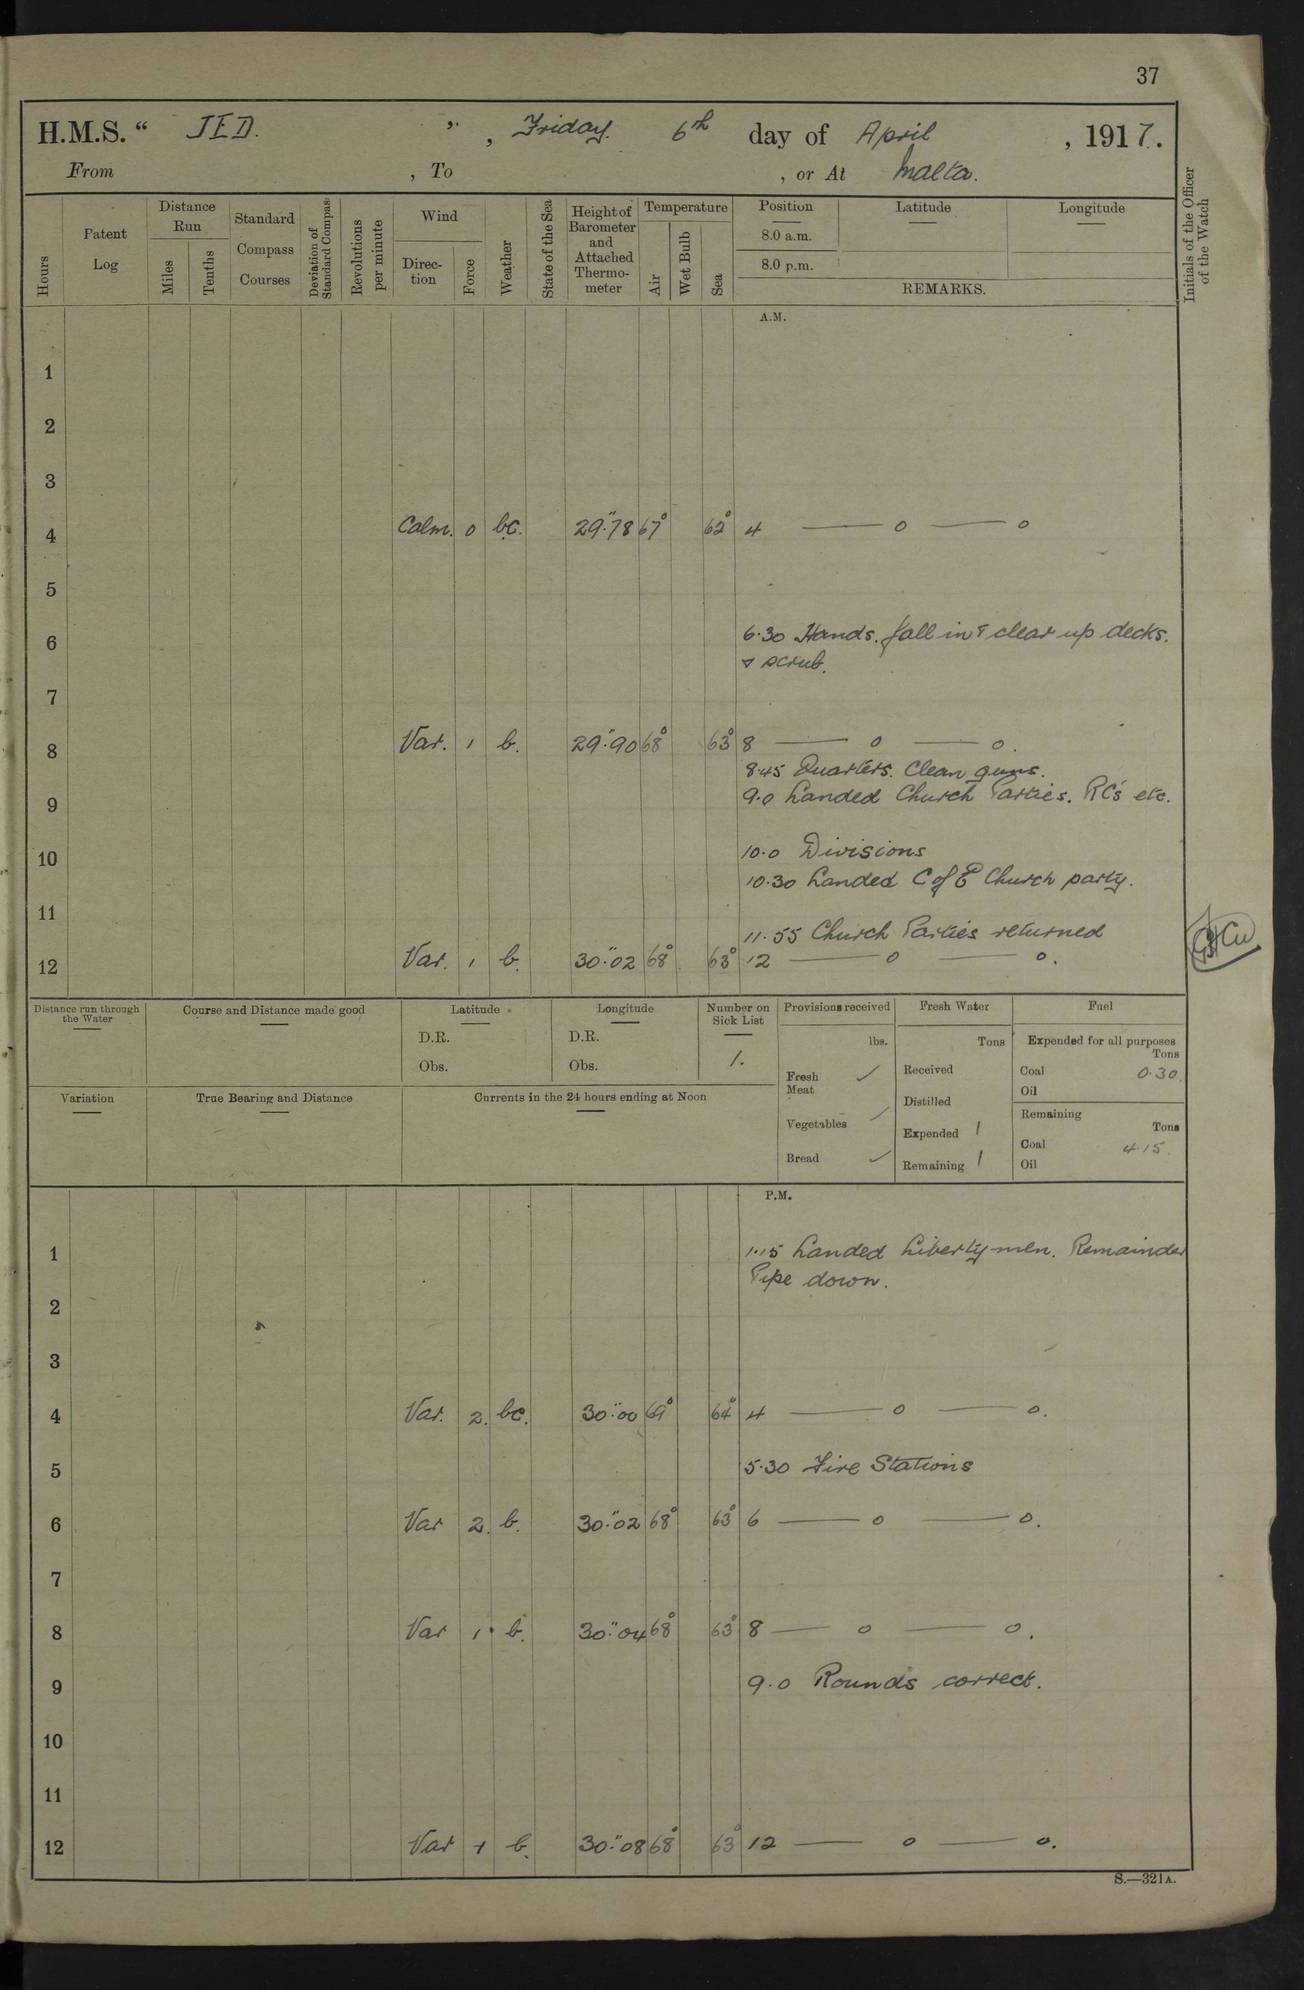 37
H.M.S. “ JED. ” , Friday. 6th day of April , 1917.
From , To , or At Malta.
Hours
Patent Log
Distance Run
Miles
Tenths
Standard Compass Courses
Deviation of Standard Compass
Revolutions per minute
Wind
Direc-tion
Force
Weather
State of the Sea
Height of Barometer and Attached Thermo-meter
Temperature
Air
Wet Bulb
Sea
Position
8.0 a.m.
8.0 p.m.
Latitude
Longitude
REMARKS.
Initials of the Officer of the Watch
A.M.
1
2
3
4 Calm. 0 bc. 29".78 67° 62° 4 — o — o
5
6 6.30 Hands. fall in & clear up decks.
& scrub.
7
8 Var. 1 b. 29".90 68° 63° 8 — o — o.
8.45 Quarters. Clean guns.
9 9.0 Landed Church Parties. RC's etc.
10 10.0 Divisions
10.30 Landed C of E Church party.
11
11.55 Church Parties returned
12 Var. 1 b. 30".02 68° 63° 12 — o — o.
Distance run through the Water
Course and Distance made good
Latitude
D.R.
Obs.
Longitude
D.R.
Obs.
Number on Sick List
1.
Provisions received
lbs.
Fresh Meat ✓
Vegetables ✓
Bread ✓
Fresh Water
Tons
Received
Distilled
Expended 1
Remaining 1
Fuel
Expended for all purposes
Tons
Coal 0.30.
Oil
Remaining
Tons
Coal 4.15.
Oil
Variation
True Bearing and Distance
Currents in the 24 hours ending at Noon
P.M.
1 1.15 Landed Liberty-men. Remainder
Pipe down.
2
3
4 Var. 2. bc. 30".00 69° 64° 4 — o — o.
5 5.30 Fire Stations
6 Var 2. b. 30".02 68° 63° 6 — o — o.
7
8 Var 1. b. 30".04 68° 63° 8 — o — o.
9 9.0 Rounds correct.
10
11
12 Var 1 b. 30".08 68° 63° 12 — o — o.
S.—321A.